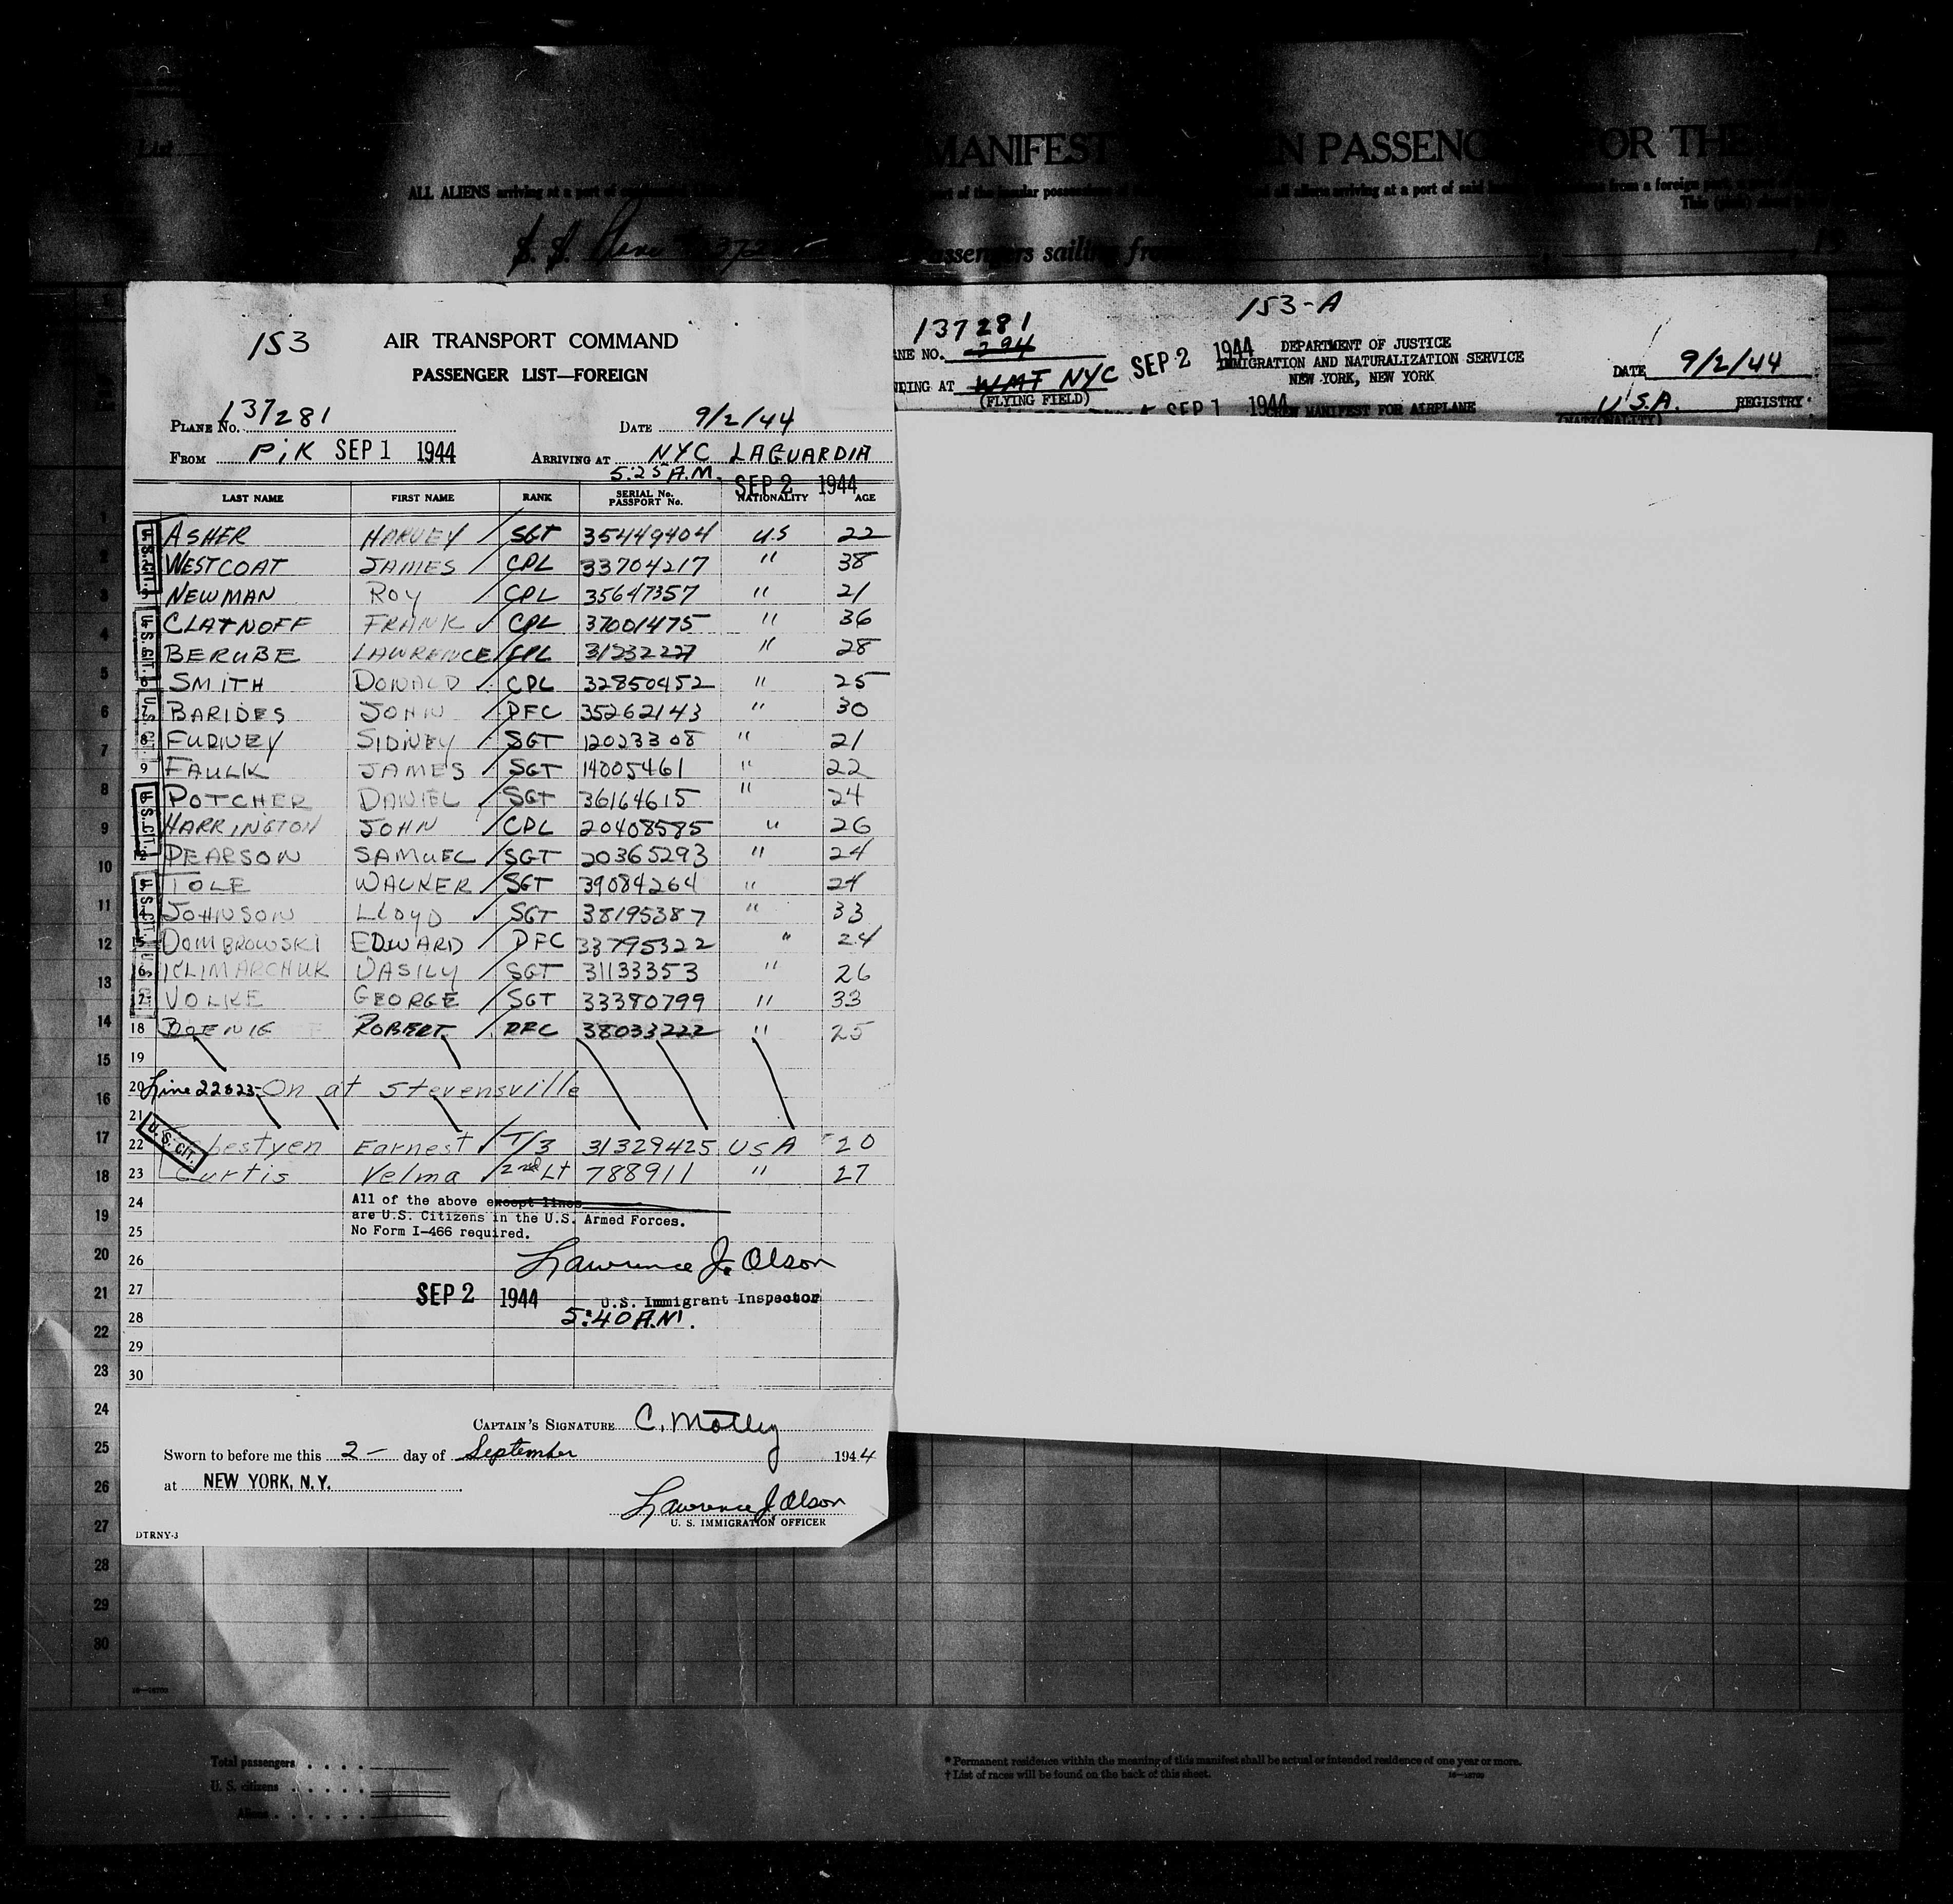 List
MANIFEST PASSENG FOR THE
ALL ALIENS arriving at a port of
all aliens arriving at a port of said from a foreign port
This
S. S. Plane
Passengers sailing from
153
AIR TRANSPORT COMMAND
PASSENGER LIST—FOREIGN
PLANE NO. 137281 DATE 9/2/44
FROM PIK SEP 1 1944 ARRIVING AT NYC LAGUARDIA
5:25 A.M. SEP 2 1944
LAST NAME FIRST NAME RANK SERIAL No. PASSPORT No. NATIONALITY AGE
U. S. CIT.
ASHER HARVEY / SGT 35449404 U.S 22
WESTCOAT JAMES / CPL 33704217 " 38
NEWMAN ROY / CPL 35647357 " 21
U. S. CIT.
CLATNOFF FRANK ✓ CPL 37001475 " 36
BERUBE LAWRENCE / CPL 31232227 " 28
SMITH DONALD / CPL 32850452 " 25
U. S. CIT.
BARIDES JOHN / PFC 35262143 " 30
8 FURNEY SIDNEY / SGT 12023308 " 21
9 FAULK JAMES / SGT 14005461 " 22
U. S. CIT.
POTCHER DANIEL / SGT 36164615 " 24
HARRINGTON JOHN / CPL 20408585 " 26
12 PEARSON SAMUEL / SGT 20365293 " 24
U. S. CIT.
TOLE WALKER / SGT 39084264 " 24
JOHNSON LLOYD ✓ SGT 38195387 " 33
15 DOMBROWSKI EDWARD / PFC 33795322 " 24
16 KLIMARCHUK VASILY / SGT 31133353 " 26
17 VOLKE GEORGE / SGT 33380799 " 33
18 ROBERT / PFC 38033222 " 25
19
20 Line 22 & 23 - On at Stevensville
21
U. S. CIT.
22 Earnest / T/3 31329425 USA 20
23 Curtis Velma / 2nd Lt 788911 " 27
24 All of the above except lines
are U.S. Citizens in the U.S. Armed Forces.
25 No Form I-466 required.
26 Lawrence J. Olson
27 SEP 2 1944 U.S. Immigrant Inspector
28 5:40 A.M.
29
30
CAPTAIN'S SIGNATURE C. Motley
Sworn to before me this 2 – day of September 1944
at NEW YORK, N.Y.
Lawrence J. Olson
U. S. IMMIGRATION OFFICER
DTRNY-3
153-A
137281
ANE NO. 294 SEP 2 1944 DEPARTMENT OF JUSTICE
IMMIGRATION AND NATURALIZATION SERVICE DATE 9/2/44
NDING AT WMT NYC NEW YORK, NEW YORK
(FLYING FIELD) U.S.A. REGISTRY
SEP 1 1944 MANIFEST FOR AIRPLANE (NATIONALITY)
1
2
3
4
5
6
7
8
9
10
11
12
13
14
15
16
17
18
19
20
21
22
23
24
25
26
27
28
29
30
Total passengers
U. S. citizens
Aliens
* Permanent residence within the meaning of this manifest shall be actual or intended residence of one year or more.
† List of races will be found on the back of this sheet.